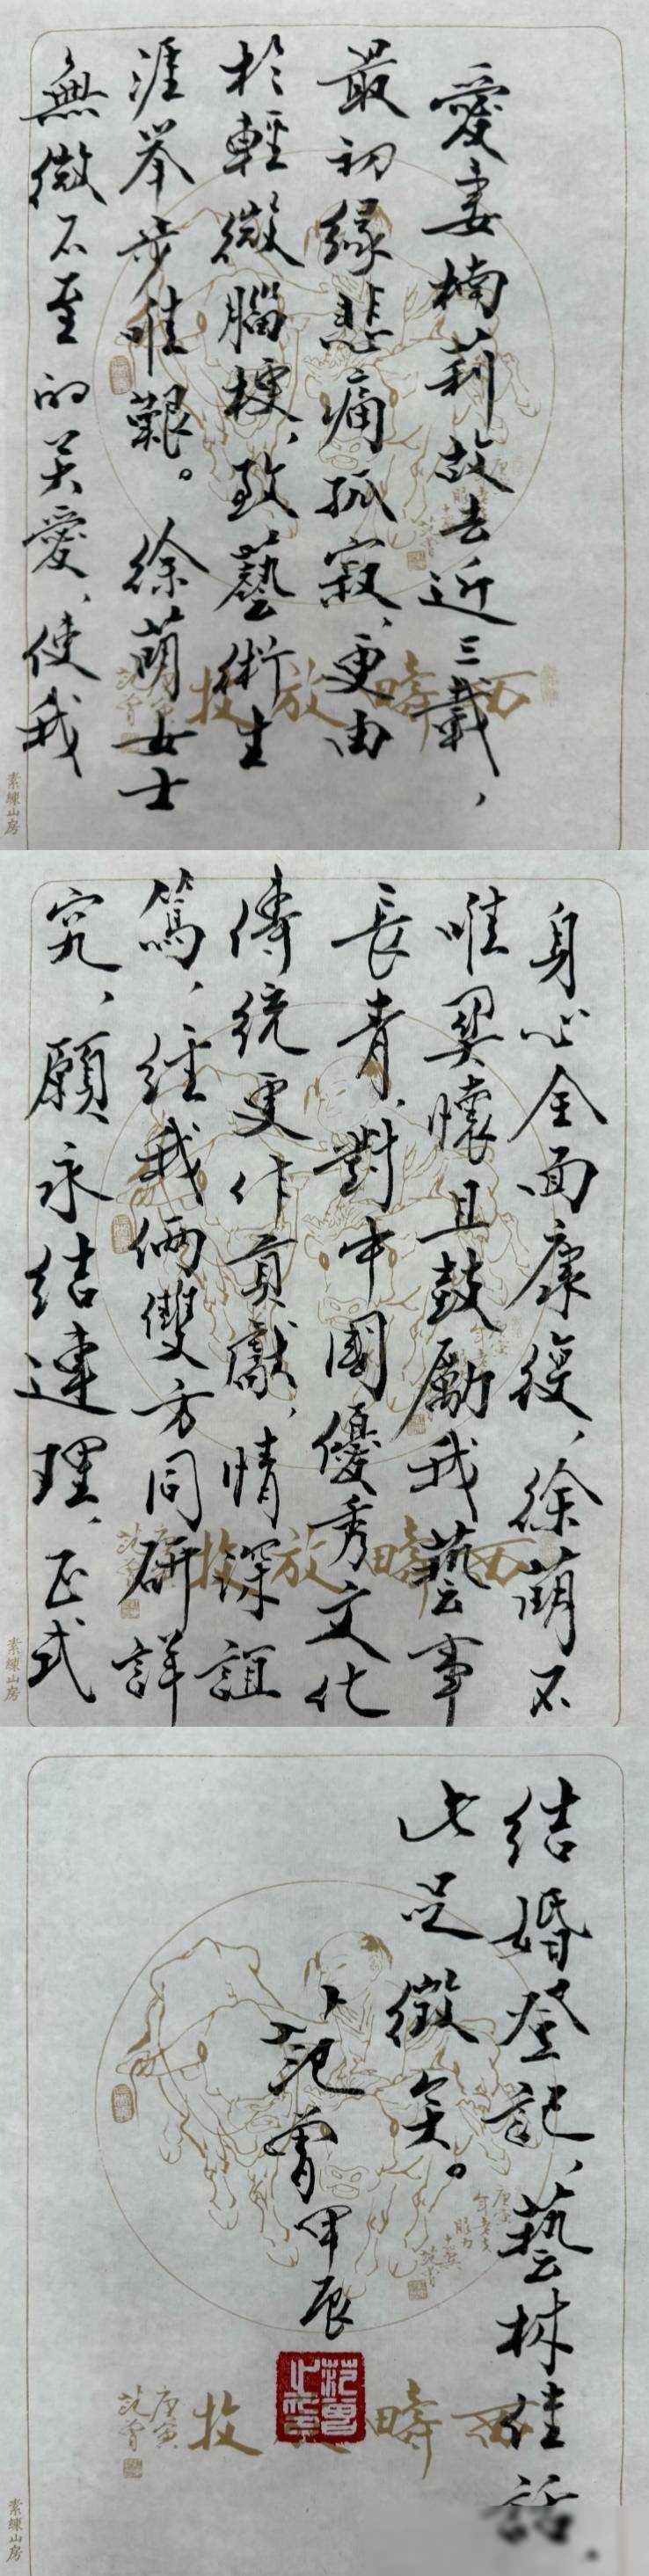 愛妻楠莉故去近三載，
最初緣悲痛孤寂，更由
於輕微腦梗，致藝術生
涯举步唯艱。徐萌女士
無微不至的关愛，使我
素練山房
身心全面康復，徐萌不
唯関懷且鼓勵我藝事
長青，對中國優秀文化
傳統更作貢獻，情深誼
篤，經我俩雙方同研詳
究，願永结連理，正式
素練山房
结婚登記，藝林佳話，
此足徵矣。
范曾甲辰
西疇放牧
庚寅
范曾
素練山房